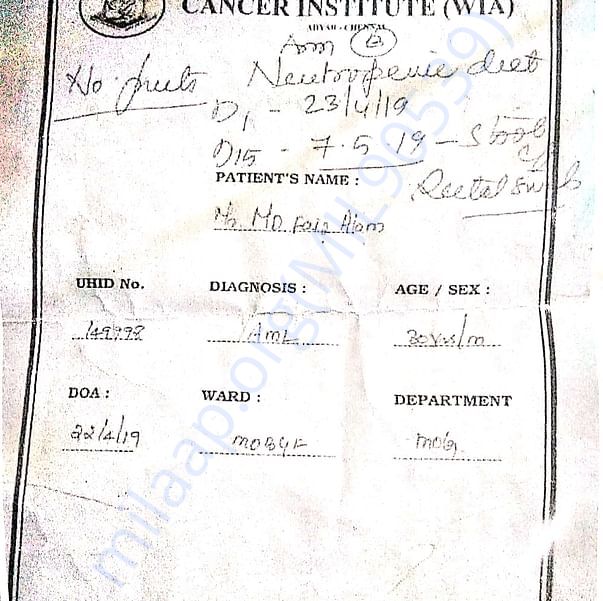 CANCER INSTITUTE (WIA)
ADYAR - CHENNAI
Arm B
No fruits Neutropenic diet
D1 - 23/4/19
D15 - 7.5.19 - Stool
Rectal swab
PATIENT'S NAME :
Mr. MD Faiz Alam
UHID No. DIAGNOSIS : AGE / SEX :
149998 AML 30yrs/m
DOA : WARD : DEPARTMENT
22/4/19
milaap.org(MIL96539)